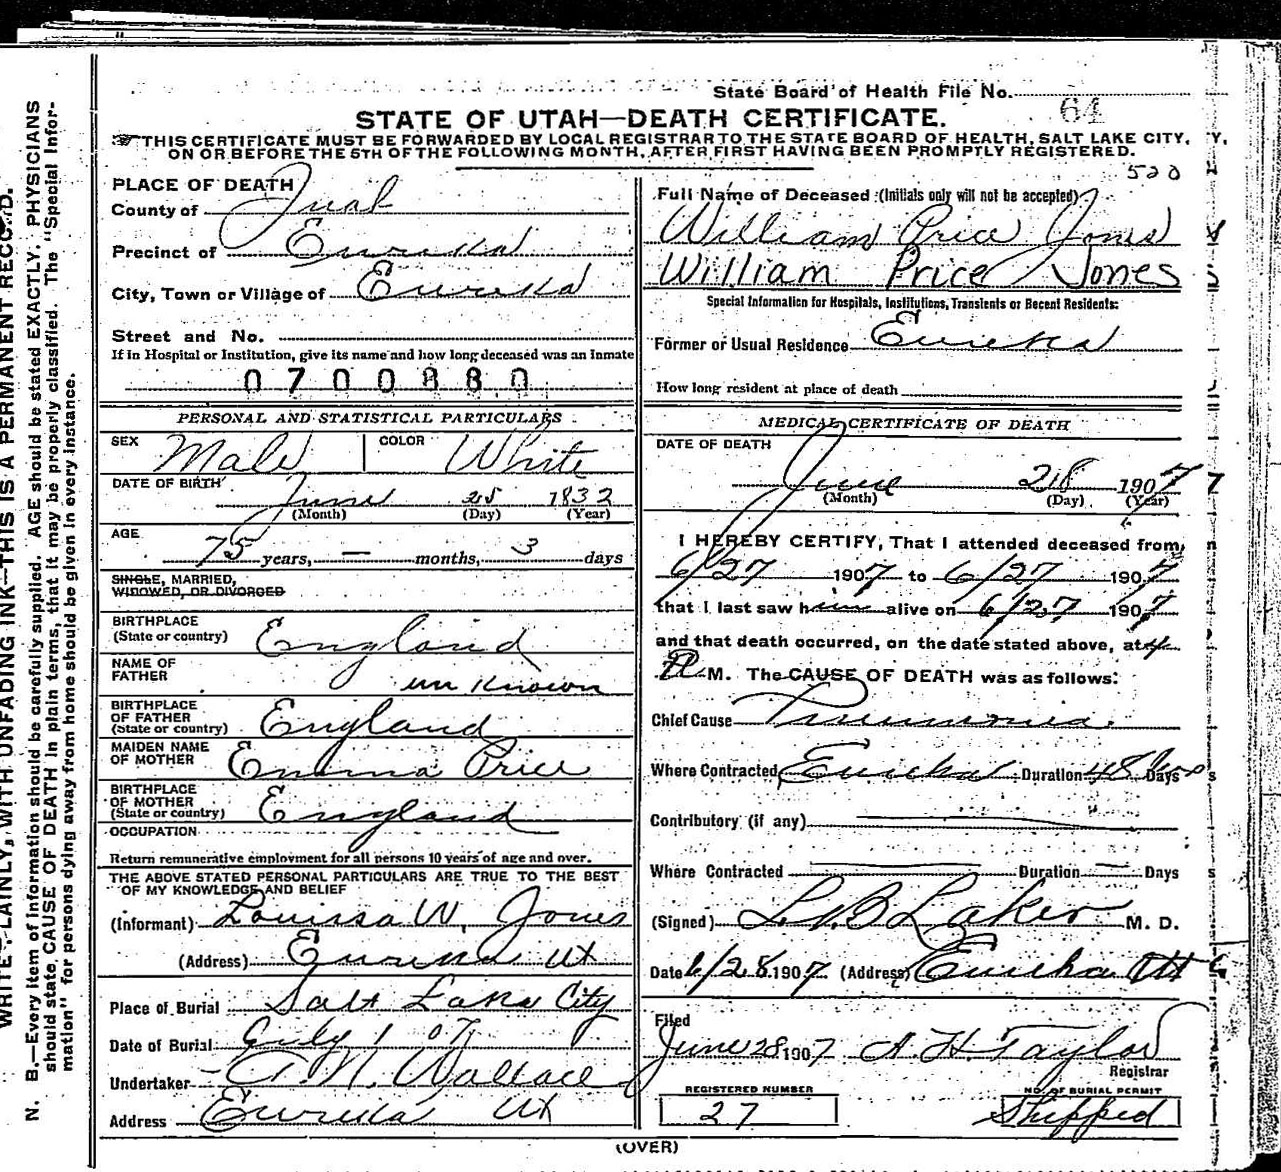 State Board of Health File No. 64
STATE OF UTAH—DEATH CERTIFICATE.
THIS CERTIFICATE MUST BE FORWARDED BY LOCAL REGISTRAR TO THE STATE BOARD OF HEALTH, SALT LAKE CITY,
ON OR BEFORE THE 5TH OF THE FOLLOWING MONTH, AFTER FIRST HAVING BEEN PROMPTLY REGISTERED.
520
PLACE OF DEATH
County of Juab
Precinct of Eureka
City, Town or Village of Eureka
Street and No.
If in Hospital or Institution, give its name and how long deceased was an Inmate
0700880
PERSONAL AND STATISTICAL PARTICULARS
SEX Male COLOR White
DATE OF BIRTH June 25 1832
(Month) (Day) (Year)
AGE 75 years, — months, 3 days
SINGLE, MARRIED,
WIDOWED, OR DIVORCED
BIRTHPLACE
(State or country) England
NAME OF
FATHER un Known
BIRTHPLACE
OF FATHER
(State or country) England
MAIDEN NAME
OF MOTHER Emma Price
BIRTHPLACE
OF MOTHER
(State or country) England
OCCUPATION
Return remunerative employment for all persons 10 years of age and over.
THE ABOVE STATED PERSONAL PARTICULARS ARE TRUE TO THE BEST
OF MY KNOWLEDGE AND BELIEF
(Informant) Louissa W. Jones
(Address) Eureka Ut
Place of Burial Salt Lake City
Date of Burial July 1 07
Undertaker Wallace
Address Eureka Ut
Full Name of Deceased (Initials only will not be accepted)
William Price Jones
William Price Jones
Special Information for Hospitals, Institutions, Transients or Recent Residents:
Former or Usual Residence Eureka
How long resident at place of death
MEDICAL CERTIFICATE OF DEATH
DATE OF DEATH
June 28 1907
(Month) (Day) (Year)
I HEREBY CERTIFY, That I attended deceased from
6/27 1907 to 6/27 1907
that I last saw him alive on 6/27 1907
and that death occurred, on the date stated above, at 4
A M. The CAUSE OF DEATH was as follows:
Chief Cause Pneumonia.
Where Contracted Eureka Duration 48 hrs Days
Contributory (if any)
Where Contracted Duration Days
(Signed) Laker M. D.
Date 6/28 1907 (Address) Eureka Ut
Filed
June 28 1907 A. H. Taylor
Registrar
REGISTERED NUMBER
27
NO. OF BURIAL PERMIT
Shipped
(OVER)
WRITE PLAINLY, WITH UNFADING INK—THIS IS A PERMANENT RECORD.
N. B.—Every item of information should be carefully supplied. AGE should be stated EXACTLY. PHYSICIANS
should state CAUSE OF DEATH in plain terms, that it may be properly classified. The "Special Infor-
mation" for persons dying away from home should be given in every instance.